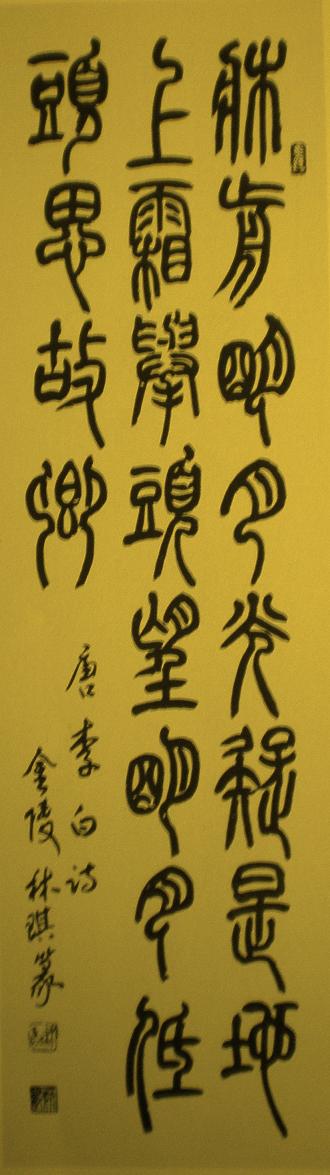 牀前明月光疑是地
上霜舉頭望明月低
頭思故鄉
唐李白詩
金陵林琪篆